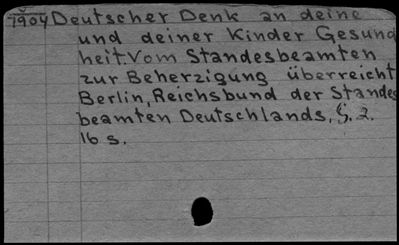 7904 Deutscher Denk an deine
und deiner Kinder Gesund
heit. Vom Standesbeamten
zur Beherzigung überreicht
Berlin, Reichsbund der Standes
beamten Deutschlands, G. 2.
16 s.